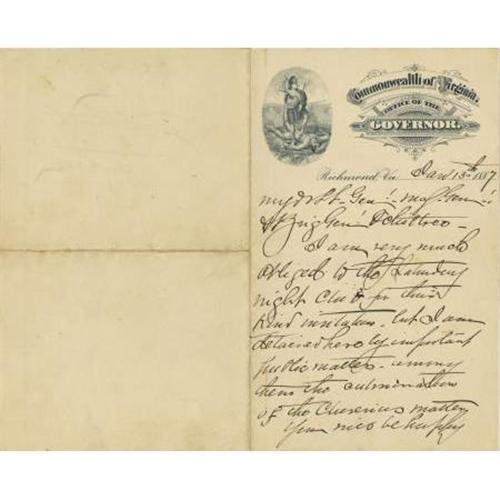 Commonwealth of Virginia,
OFFICE OF THE
GOVERNOR.
Richmond, Va. Jan 13th 1887
my Lt. Genl. - Maj. Genl.
& Brig Genl
I am very much
obliged to the Saturday
night Club for their
kind invitation. but I am
detained here by important
public matters - among
them the culmination
of the matter
You will be